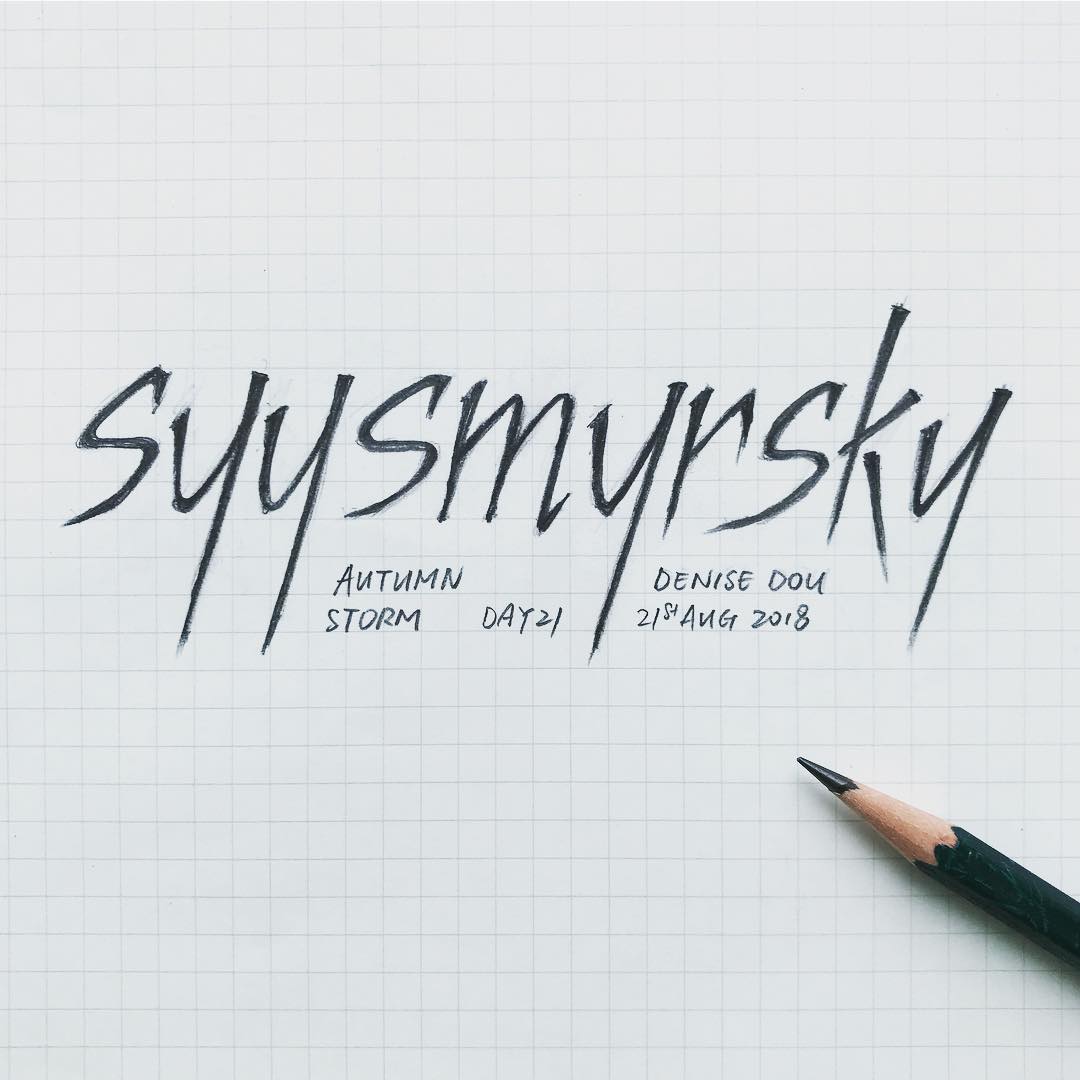 syysmyrsky
AUTUMN
STORM
DAY21
DENISE DOU
21st AUG 2018